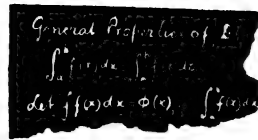 General Properties of
∫ f(x)dx ∫ f(x)dx
Let ∫f(x)dx = Φ(x), ∫ f(x)dx